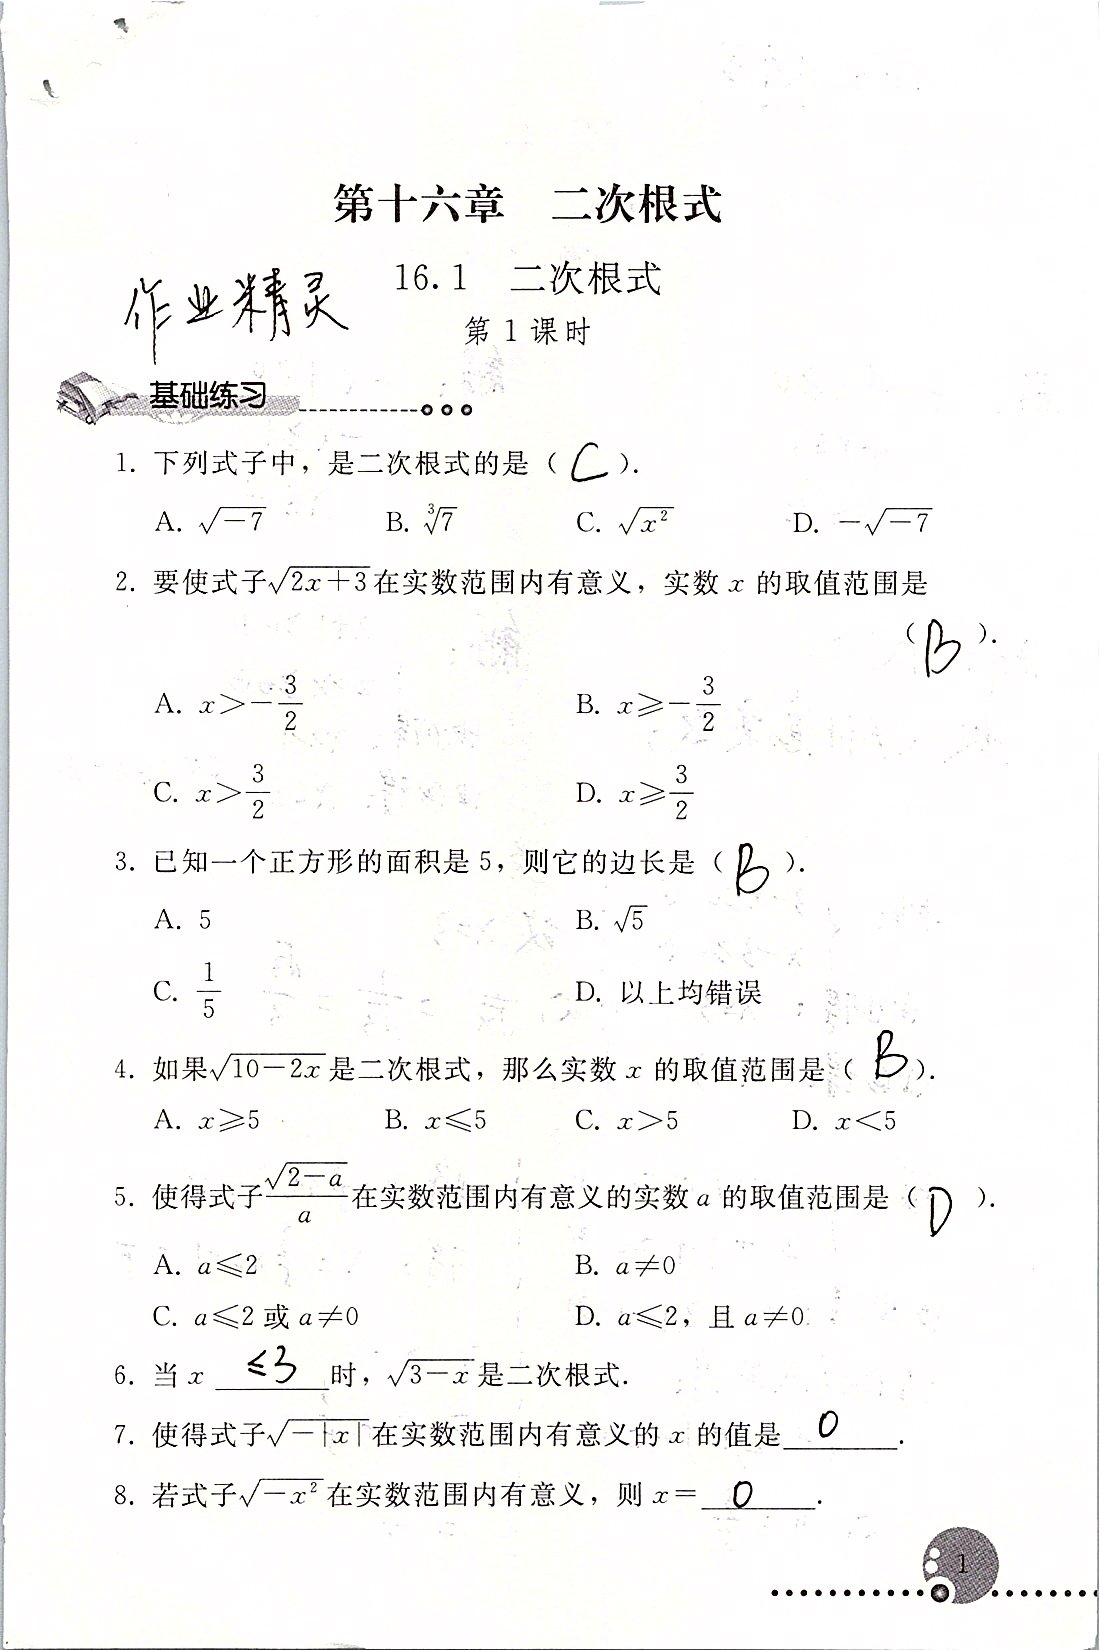 第十六章 二次根式
16.1 二次根式
作业精灵
第1课时
基础练习
1. 下列式子中，是二次根式的是（ C ）.
A. √−7 B. ∛7 C. √x² D. −√−7
2. 要使式子√2x+3在实数范围内有意义，实数 x 的取值范围是
（ B ）.
A. x>−3/2 B. x⩾−3/2
C. x>3/2 D. x⩾3/2
3. 已知一个正方形的面积是5，则它的边长是（ B ）.
A. 5 B. √5
C. 1/5 D. 以上均错误
4. 如果√10−2x是二次根式，那么实数 x 的取值范围是（ B ）.
A. x⩾5 B. x⩽5 C. x>5 D. x<5
5. 使得式子√2−a/a在实数范围内有意义的实数 a 的取值范围是（ D ）.
A. a⩽2 B. a≠0
C. a⩽2或a≠0 D. a⩽2，且a≠0
6. 当 x ≤3 时，√3−x是二次根式.
7. 使得式子√−|x|在实数范围内有意义的 x 的值是 0 .
8. 若式子√−x²在实数范围内有意义，则 x= 0 .
1